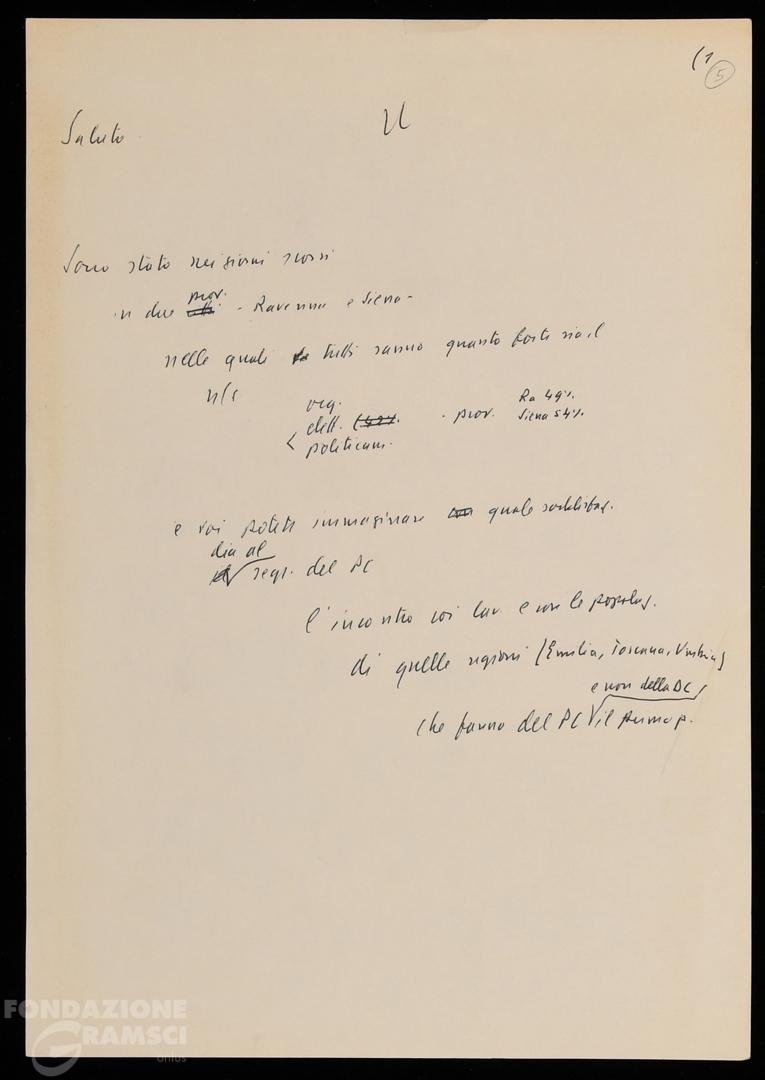 (1
5
Saluto
Sono stato nei giorni scorsi
prov.
in due - Ravenna e Siena -
nelle quali tutti sanno quanto forte sia il
n/s
org.
Ra 49%
elett. (42%. - prov. Siena 54%
politicam.
e voi potete immaginare quale soddisfaz.
dia al
segr. del PC
l'incontro coi lav. e con le popolaz.
di quelle regioni (Emilia, Toscana, Umbria)
e non della DC
che fanno del PC il primo p.
FONDAZIONE
GRAMSCI
onlus